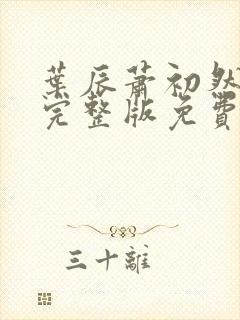 葉辰蕭初然
完整版免費
三十離